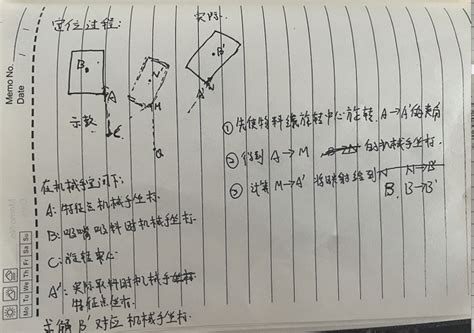 Memo No.
Date
定位过程:
实际.
B
A
示教
C
N
M
Q
B'
A'
①先使物料绕旋转中心旋转 A→A'的夹角
②得到 A→M 的机械手坐标.
③计算 M→A' 将映射给到 N→B
B. B→B'
在机械手空间下:
A: 特征点机械手坐标.
B: 吸嘴吸料时机械手坐标.
C: 旋转中心
A': 实际取料时机械手
特征点坐标.
求解 B' 对应机械手坐标.
Mo Tu We Th Fr Sa Su